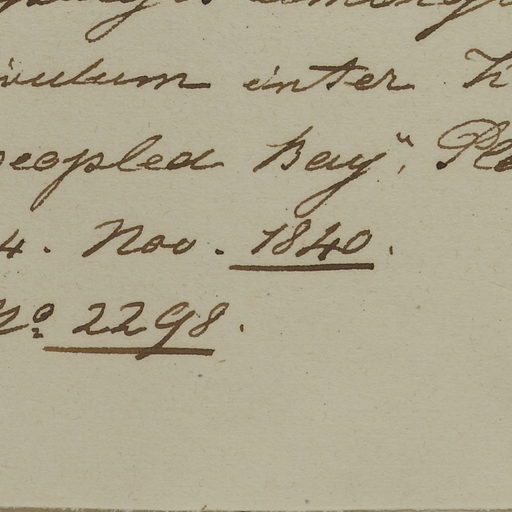 ivulum inter
peopled Bay", Pl
4. Nov. 1840.
No. 2298.